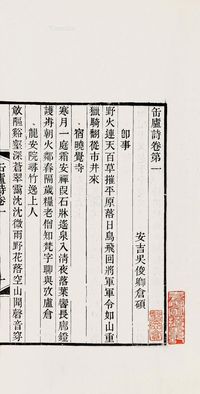 缶廬詩卷第一
安吉吳俊卿倉碩
卽事
野火連天百草摧平原落日鳥飛回將軍軍令如山重
獵騎翻從市井來
宿曉覺寺
寒月一庭霜安禪叚石牀遙泉入清夜落葉響長廊鐙
護歬朝火鄰舂隔歲糧老僧知梵字聊與攷盧倉
龍安院尋竹逸上人
谿壑深蒼翠靄沈沈微雨野花落空山聞磬音穿
缶廬詩卷一